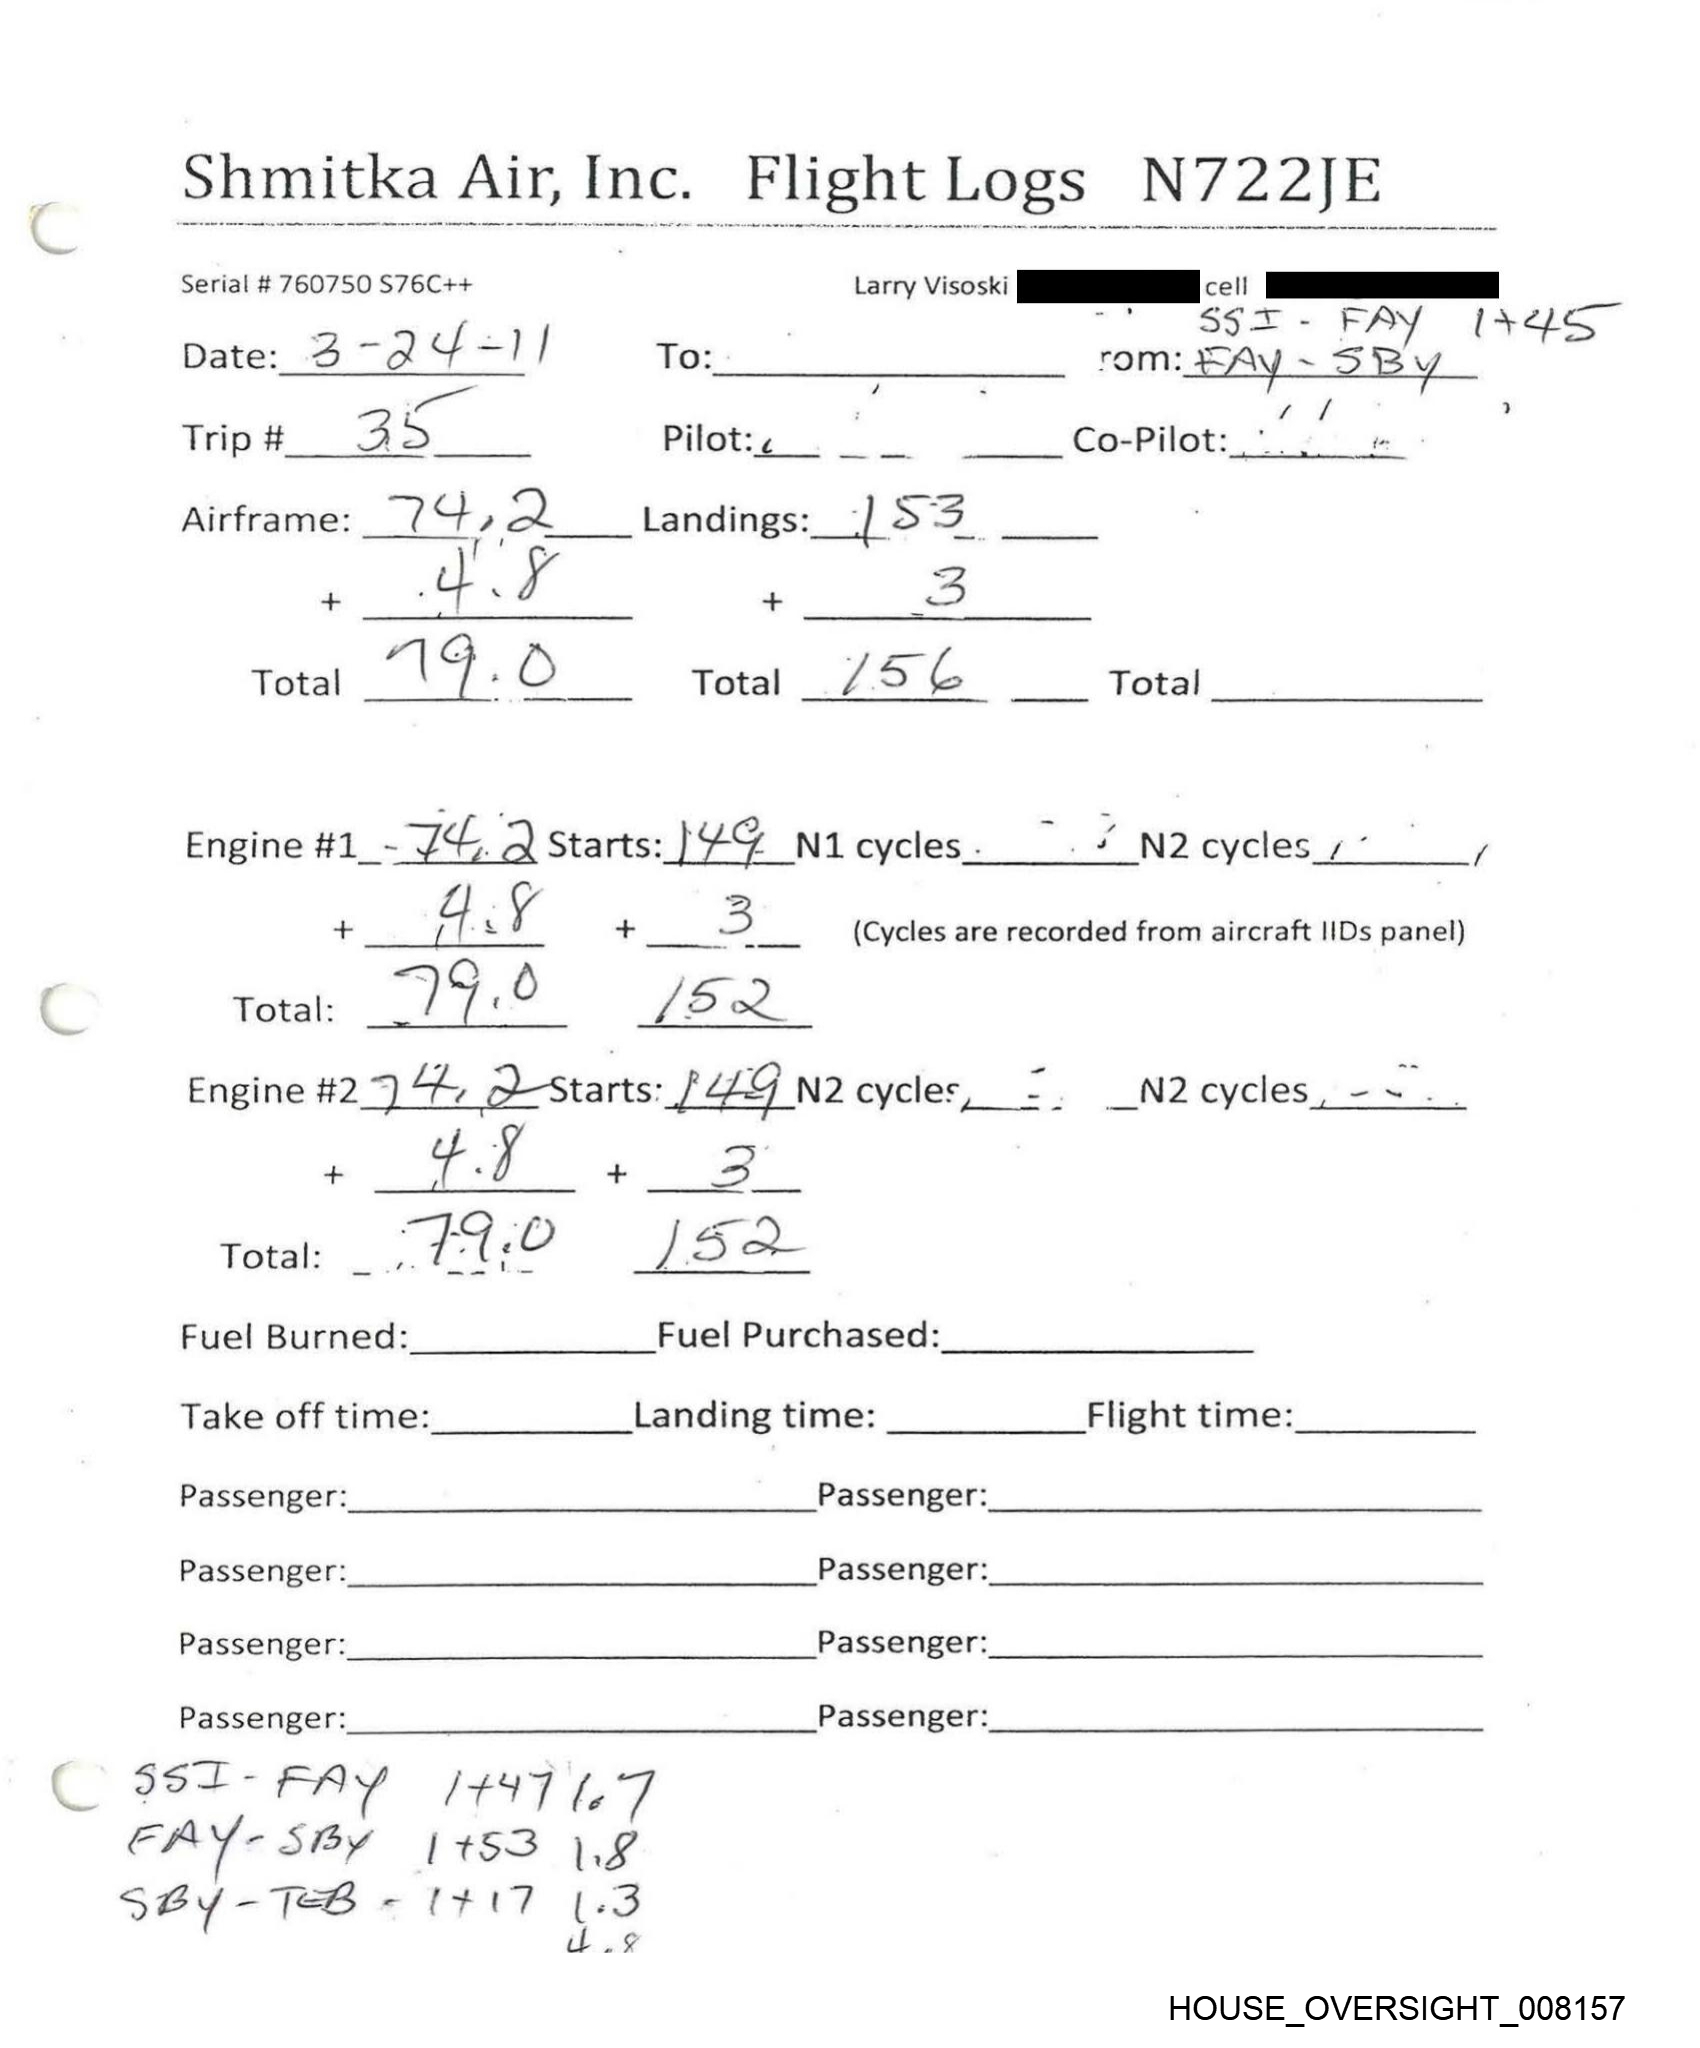 Shmitka Air, Inc. Flight Logs N722JE
Serial # 760750 S76C++ Larry Visoski cell
SSI - FAY 1+45
Date: 3-24-11 To: rom: FAY - SBY
Trip # 35 Pilot: Co-Pilot:
Airframe: 74,2 Landings: 153
+ 4.8 + 3
Total 79.0 Total 156 Total
Engine #1 74.2 Starts: 149 N1 cycles N2 cycles
+ 4.8 + 3 (Cycles are recorded from aircraft IIDs panel)
Total: 79.0 152
Engine #2 74.2 Starts: 149 N2 cycles N2 cycles
+ 4.8 + 3
Total: 79.0 152
Fuel Burned: Fuel Purchased:
Take off time: Landing time: Flight time:
Passenger: Passenger:
Passenger: Passenger:
Passenger: Passenger:
Passenger: Passenger:
SSI - FAY 1+47 1.7
FAY - SBY 1+53 1.8
SBY - TEB - 1+17 1.3
4.8
HOUSE_OVERSIGHT_008157